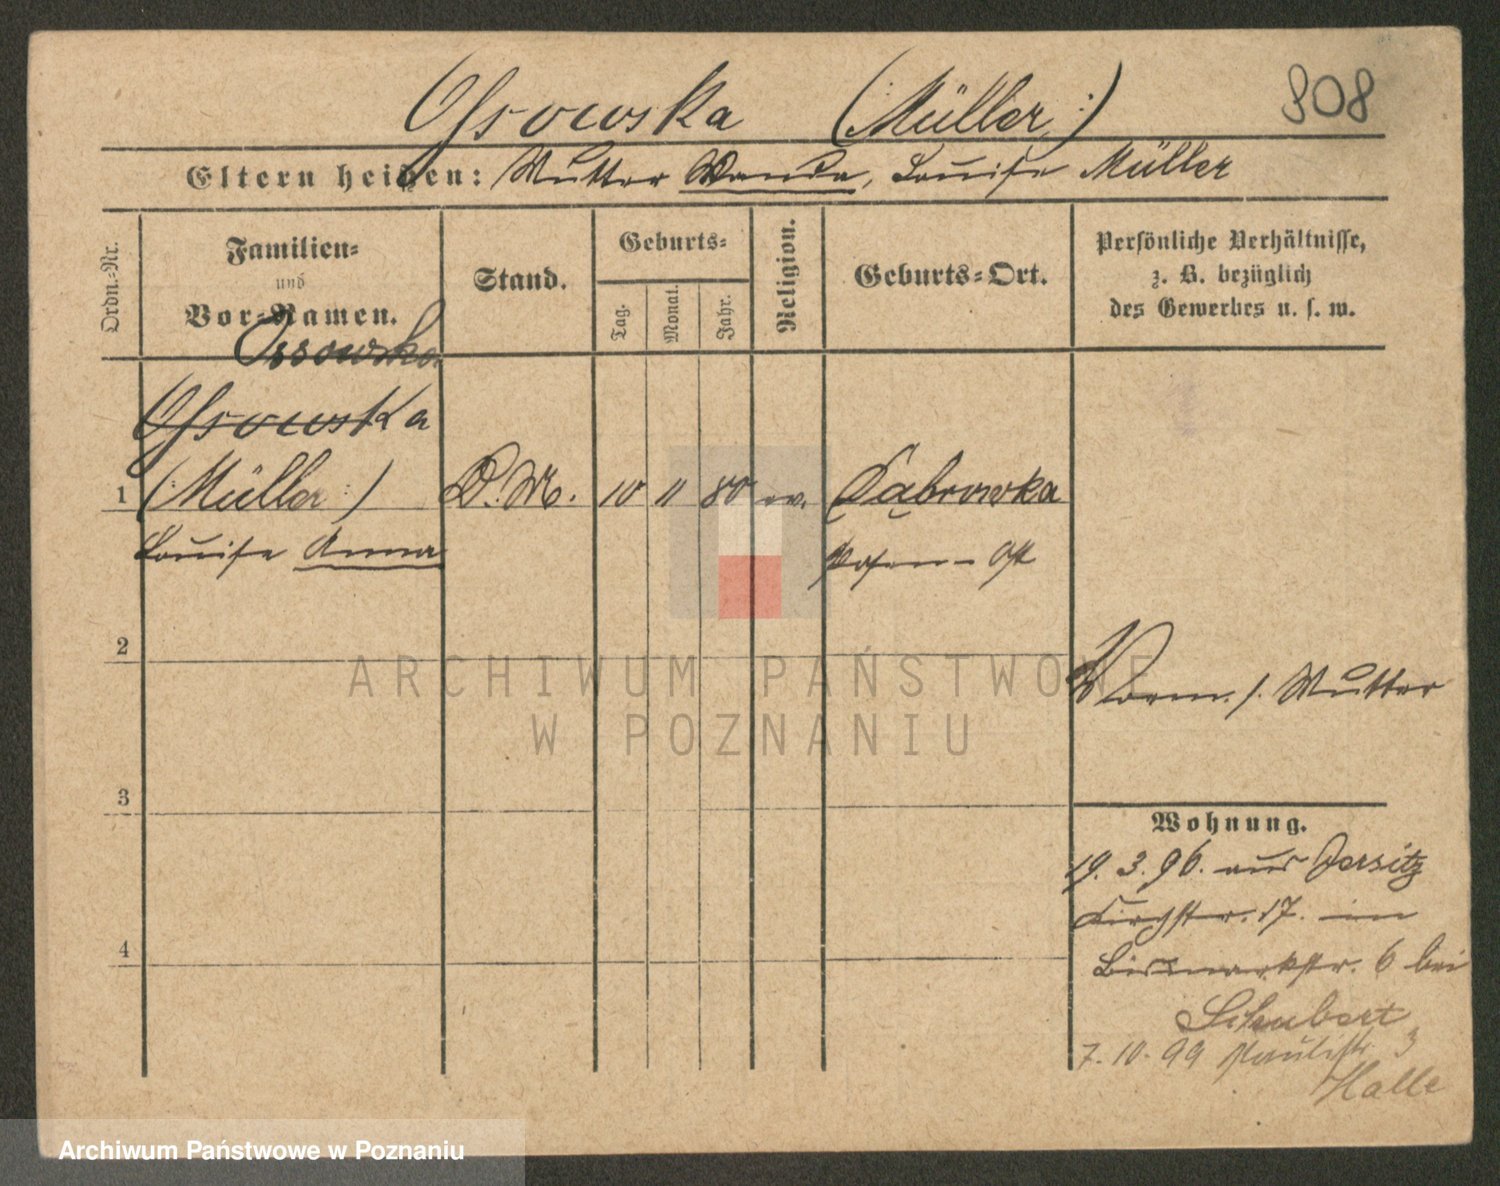 Ossowska (: Müller :)
908
Eltern heißen: Mutter Wanda, Louise Müller
Ordn.-Nr.
Familien-
und
Vor-Namen.
Stand.
Geburts-
Tag.
Monat.
Jahr.
Religion.
Geburts-Ort.
Persönliche Verhältnisse,
z. B. bezüglich
des Gewerbes u. s. w.
Ossowska
Ossowska
1 (: Müller :) D. M. 10 11 80 ev. Dąbrowka
Louise Anna Posen-Ost
2
Vorm. s. Mutter
3
Wohnung.
19. 3. 96. aus Jersitz
Kirchstr. 17. in
Bismarckstr. 6 bei
4
Schubert
7. 10. 99 Paulistr 3
Halle
ARCHIWUM PAŃSTWOWE
W POZNANIU
Archiwum Państwowe w Poznaniu